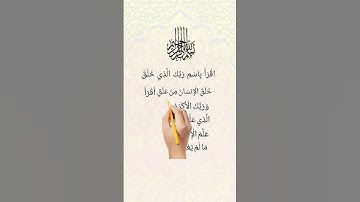 بسم الله الرحمن الرحيم
اقْرَأْ بِاسْمِ رَبِّكَ الَّذِي خَلَقَ
خَلَقَ الْإِنسَانَ مِنْ عَلَقٍ اقْرَأْ
وَرَبُّكَ
الَّذِي
عَلَّمَ
مَا لَمْ